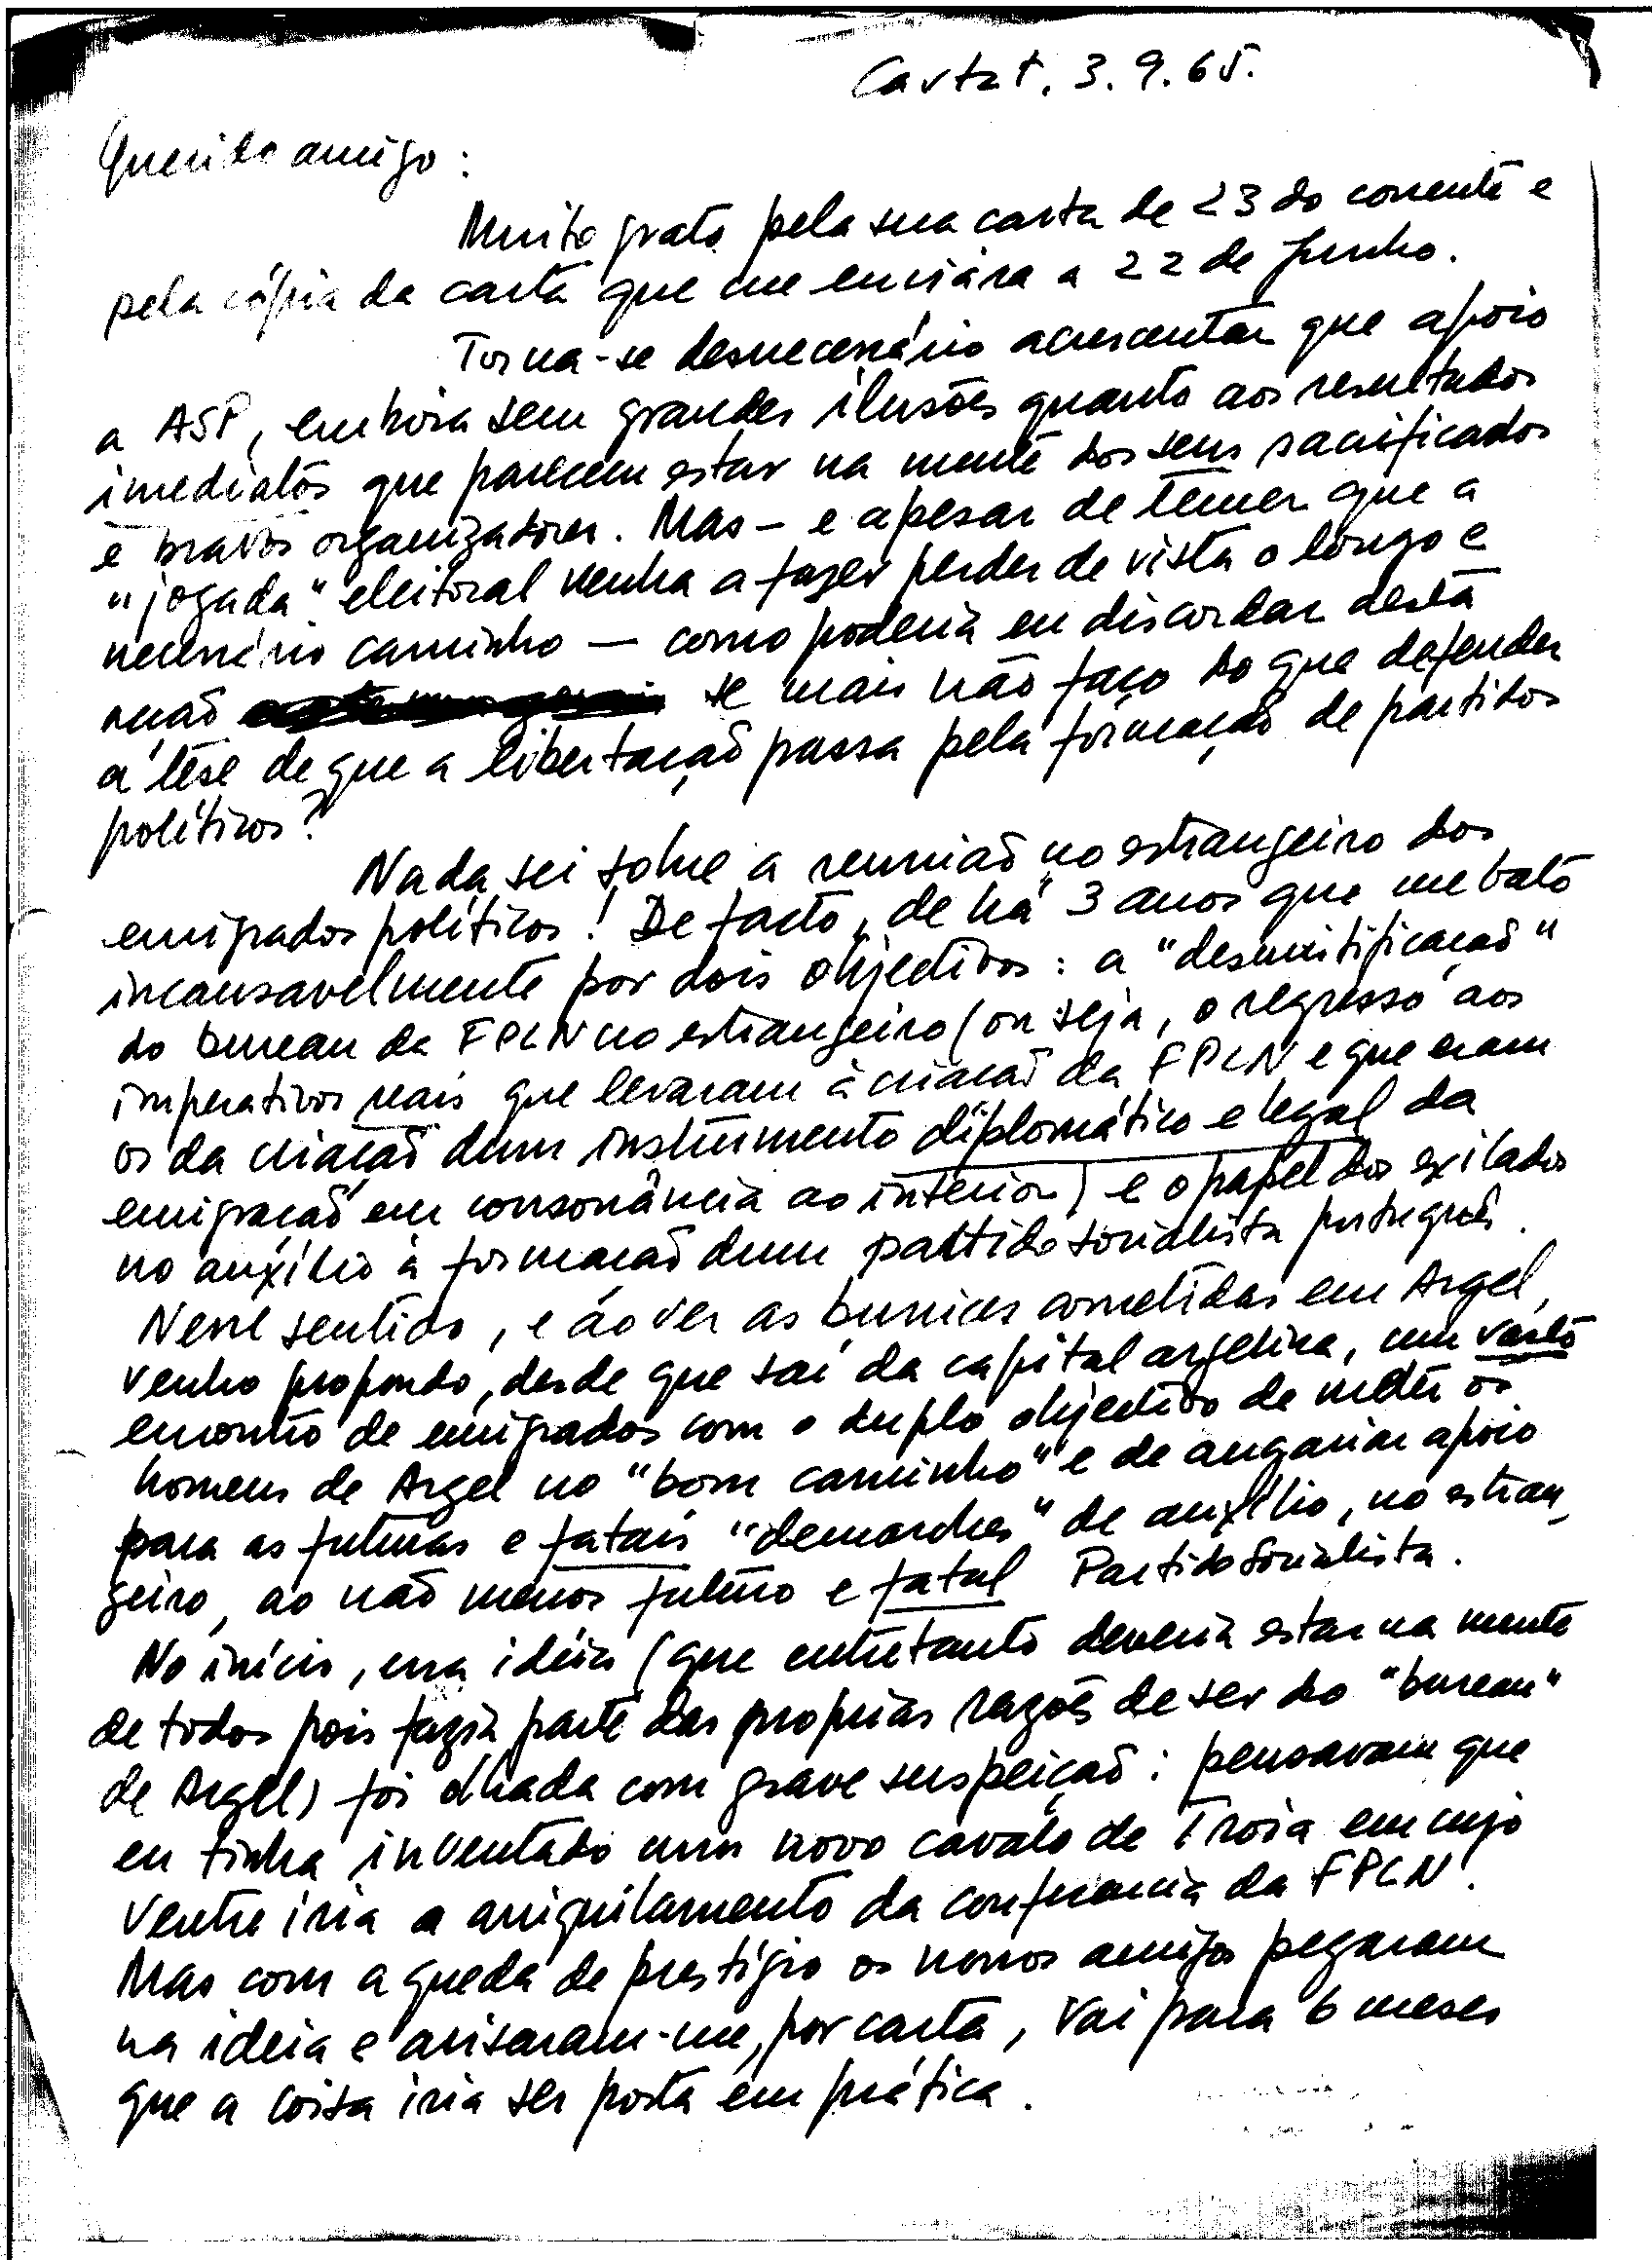 3.9.65.
Querido amigo:
Muito grato pela sua carta de 23 do corrente e
pela cópia da carta que me enviára a 22 de Junho.
Torna-se desnecessário acrescentar que apoio
a ASP, embora sem grandes ilusões quanto aos resultados
imediatos que parecem estar na mente dos seus sacrificados
e bravos organizadores. Mas - e apesar de temer que a
"jogada" eleitoral venha a fazer perder de vista o longo e
necessário caminho - como poderia eu discordar desta
se mais não faço do que defender
a tese de que a libertação passa pela formação de partidos
políticos?
Nada sei sobre a reunião no estrangeiro dos
emigrados políticos! De facto, de há 3 anos que me bato
incansavelmente por dois objectivos: a "desmitificação"
do bureau da FPLN no estrangeiro (ou seja, o regresso aos
imperativos reais que levaram à criação da FPLN e que eram
os da criação dum instrumento diplomático e legal da
emigração em consonância ao interior) e o papel dos exilados
no auxílio à formação dum partido socialista português.
Nesse sentido, e ao ver as burrices cometidas em Argel,
venho propondo, desde que saí da capital argelina, um vasto
encontro de emigrados com o duplo objectivo de meter os
homens de Argel no "bom caminho" e de angariar apoio
para as futuras e fatais "demarches" de auxílio, no estran-
geiro, ao não menos futuro e fatal Partido Socialista.
No início, essa idéia (que entretanto deveria estar na mente
de todos pois fazia parte das proprias razões de ser do "bureau"
de Argel) foi olhada com grave suspeição: pensavam que
eu tinha inventado um novo cavalo de Troia em cujo
ventre iria o aniquilamento da confraria da FPLN!
Mas com a queda de prestígio os nossos amigos pegaram
na ideia e avisaram-me, por carta, vai para 6 meses
que a coisa iria ser posta em prática.